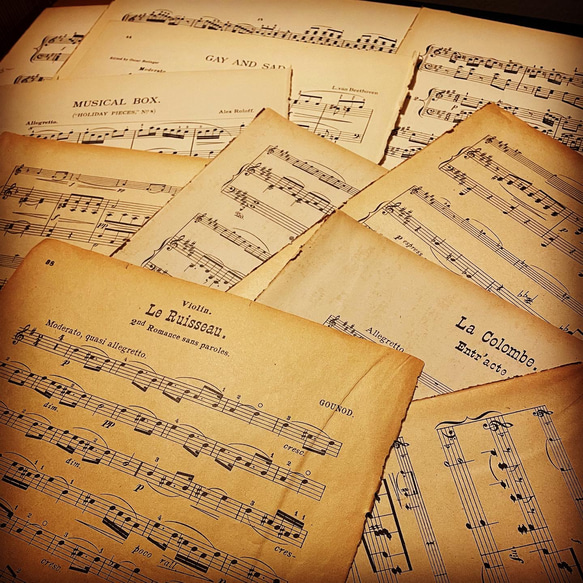 GAY AND SAD
Moderato
L. van Beethoven
MUSICAL BOX.
("HOLIDAY PIECES," Nº 8.)
Alex Rolof
Allegretto.
f
p espress.
88
Violin.
Le Ruisseau.
2nd Romance sans paroles.
Moderato, quasi allegretto.
GOUNOD.
p
cresc.
dim.
pp
dim.
p
cres.
poco rall.
La Colombe.
Entr'acte
Allegretto